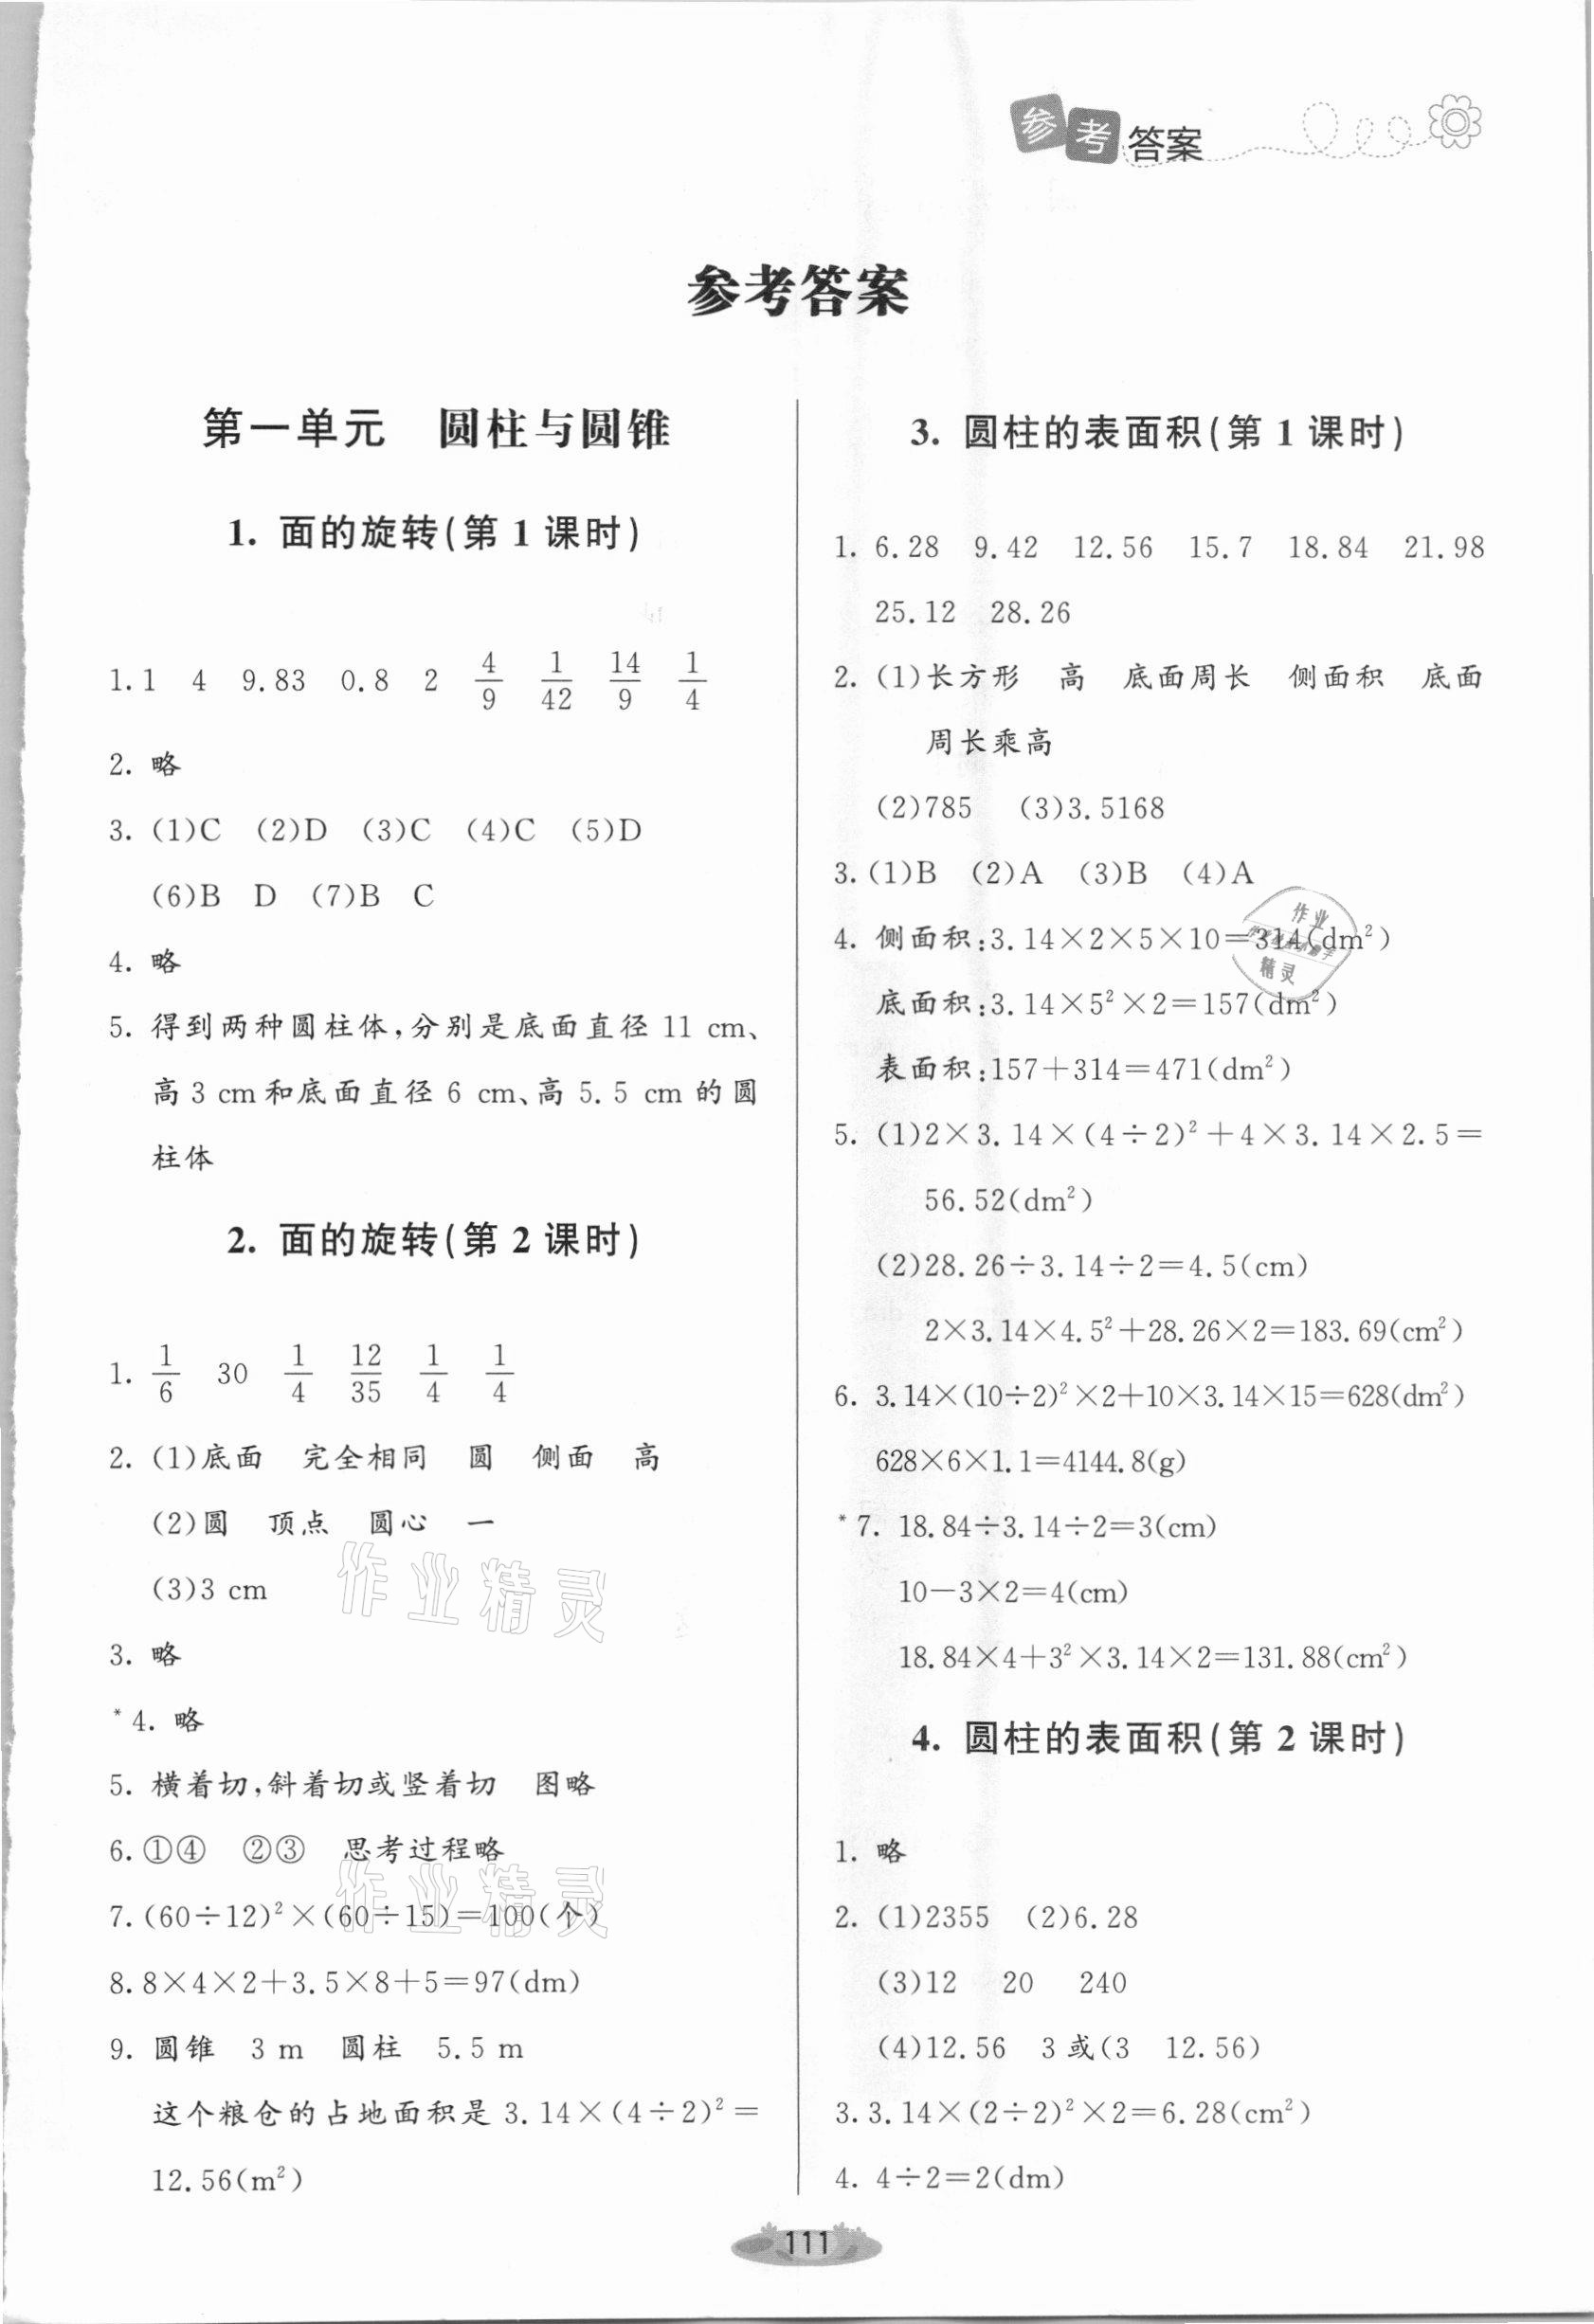 参考答案
参考答案
第一单元 圆柱与圆锥
1. 面的旋转(第 1 课时)
1.1 4 9.83 0.8 2 4/9 1/42 14/9 1/4
2. 略
3. (1)C (2)D (3)C (4)C (5)D
(6)B D (7)B C
4. 略
5. 得到两种圆柱体,分别是底面直径 11 cm、
高 3 cm和底面直径 6 cm、高 5.5 cm 的圆
柱体
2. 面的旋转(第 2 课时)
1. 1/6 30 1/4 12/35 1/4 1/4
2. (1)底面 完全相同 圆 侧面 高
(2)圆 顶点 圆心 一
(3)3 cm
3. 略
*4. 略
5. 横着切,斜着切或竖着切 图略
6.①④ ②③ 思考过程略
7.(60÷12)²×(60÷15)=100(个)
8.8×4×2+3.5×8+5=97(dm)
9. 圆锥 3 m 圆柱 5.5 m
这个粮仓的占地面积是 3.14×(4÷2)²=
12.56(m²)
3. 圆柱的表面积(第 1 课时)
1. 6.28 9.42 12.56 15.7 18.84 21.98
25.12 28.26
2. (1)长方形 高 底面周长 侧面积 底面
周长乘高
(2)785 (3)3.5168
3.(1)B (2)A (3)B (4)A
4. 侧面积:3.14×2×5×10=314(dm²)
底面积:3.14×5²×2=157(dm²)
表面积:157+314=471(dm²)
5. (1)2×3.14×(4÷2)²+4×3.14×2.5=
56.52(dm²)
(2)28.26÷3.14÷2=4.5(cm)
2×3.14×4.5²+28.26×2=183.69(cm²)
6. 3.14×(10÷2)²×2+10×3.14×15=628(dm²)
628×6×1.1=4144.8(g)
*7. 18.84÷3.14÷2=3(cm)
10-3×2=4(cm)
18.84×4+3²×3.14×2=131.88(cm²)
4. 圆柱的表面积(第 2 课时)
1. 略
2. (1)2355 (2)6.28
(3)12 20 240
(4)12.56 3或(3 12.56)
3.3.14×(2÷2)²×2=6.28(cm²)
4. 4÷2=2(dm)
111
作业精灵
作业精灵
作业
精灵